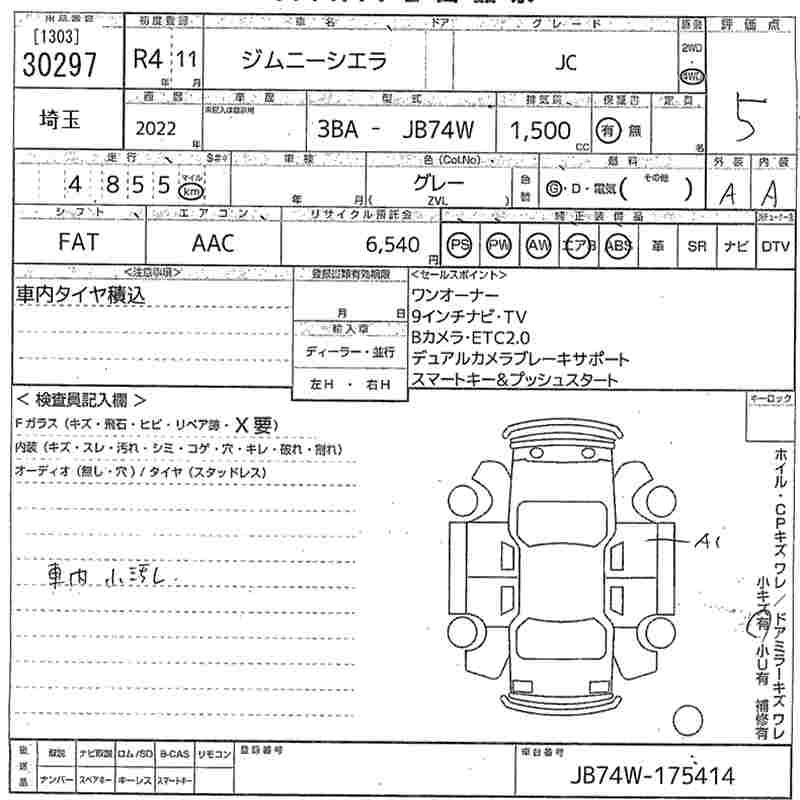 初度登録 車名 ドア グレード 評価点
[1303]
30297 R4 年 11 月 ジムニーシエラ JC 2WD・4WD 5
埼玉 2022 年 型式 3BA - JB74W 排気量 1,500 CC 保証書 有 無 定員 名
走行 4855 マイル km 車検 年 月 色(Col.No) グレー ( ZVL ) 色替 燃料 G・D・電気( その他 ) 外装 A 内装 A
シフト エアコン リサイクル預託金 純正装備品
FAT AAC 6,540 円 PS PW AW エアB ABS 革 SR ナビ DTV
<注意事項> 登録書類有効期限 <セールスポイント>
車内タイヤ積込
月 日
輸入車
ディーラー・並行
左H ・ 右H
ワンオーナー
9インチナビ・TV
Bカメラ・ETC2.0
デュアルカメラブレーキサポート
スマートキー&プッシュスタート
< 検査員記入欄 > キーロック
Fガラス(キズ・飛石・ヒビ・リペア跡・X要)
内装(キズ・スレ・汚れ・シミ・コゲ・穴・キレ・破れ・割れ)
オーディオ(無し・穴)/タイヤ(スタッドレス)
車内 小汚レ
A1
ホイル・CPキズ ワレ/ドアミラーキズ ワレ
小キズ有/小U有 補修有
後送品 取説 ナビ取説 ロム/SD B-CAS リモコン 登録番号 車台番号
ナンバー スペアキー キーレス スマートキー JB74W-175414